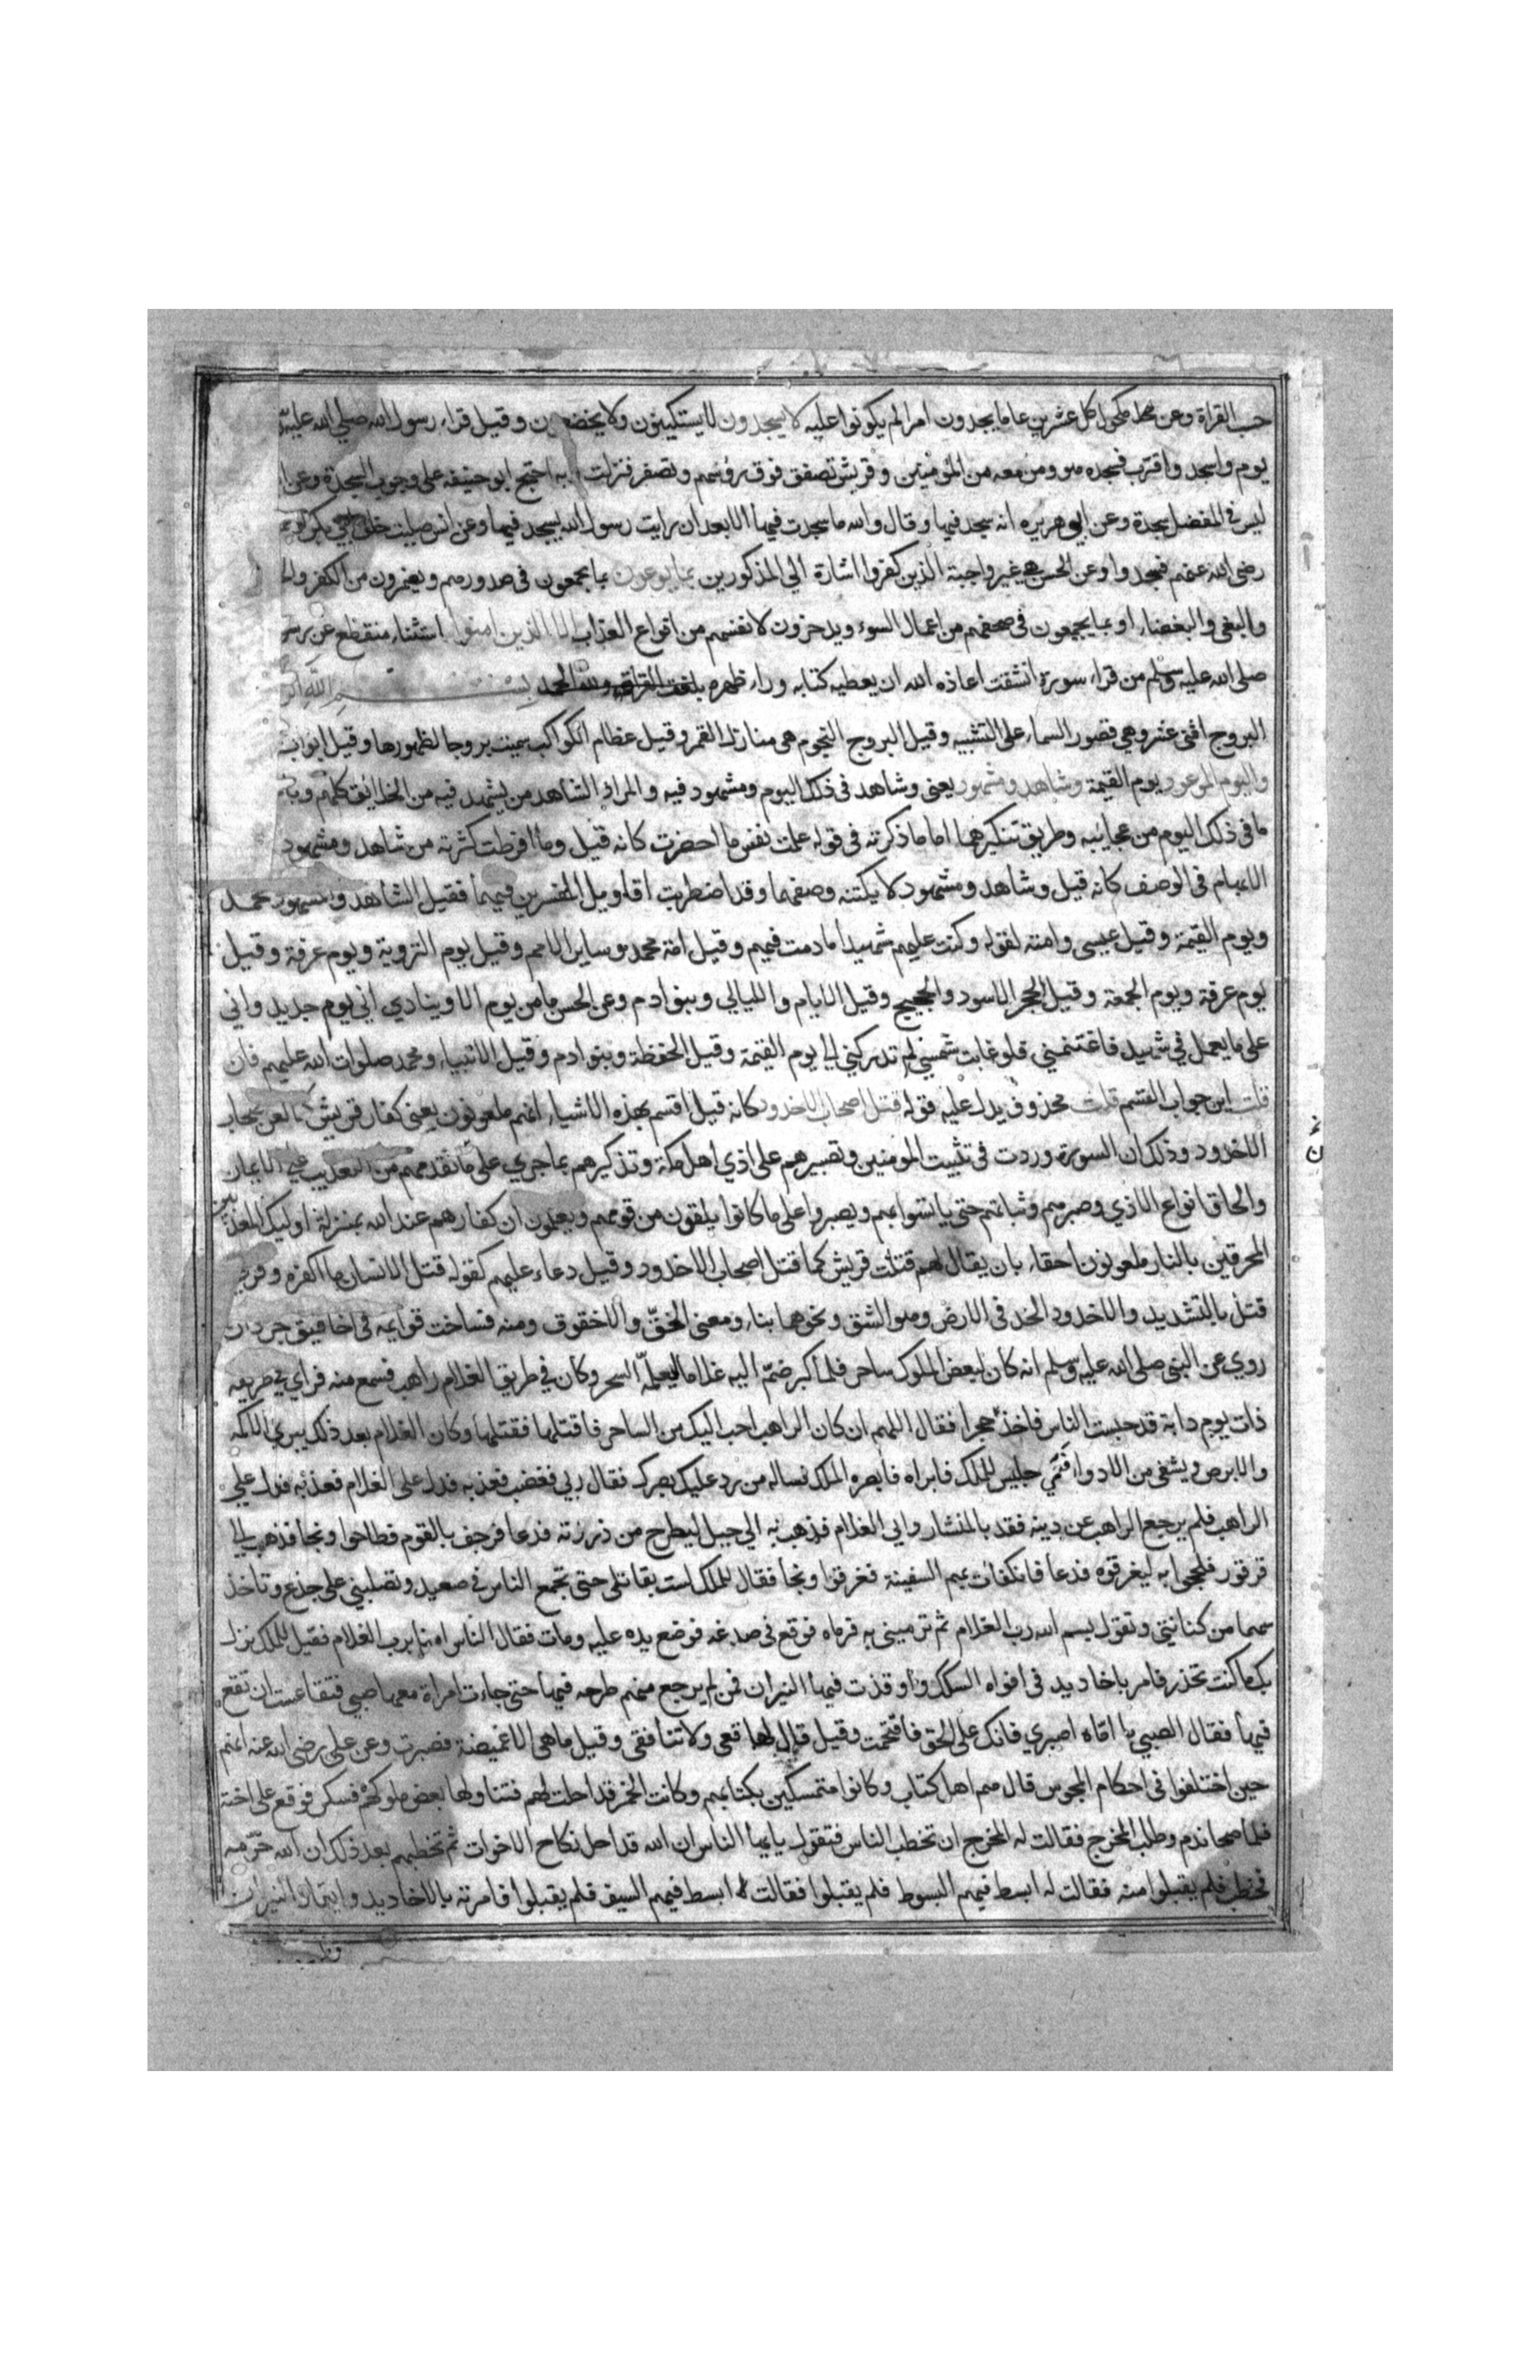 حسب القراة وعن مكحول كل عشرين عاما يجدون امرا لم يكونوا عليه لا يسجدون لا يستكينون ولا يخضعون وقيل قراء رسول الله صلي الله عليه
يوم واسجد واقترب فسجد هو ومن معه من المؤمنين وقريش تصفق فوق رؤسهم وتصفر فنزلت وبه احتج ابو حنيفه على وجوب السجدة وعن
ليس في المفصل سجدة وعن ابي هريره انه سجد فيها وقال والله ما سجدت فيها الا بعد ان رايت رسول الله يسجد فيها وعن انس صليت خلف ابي بكر
رضى الله عنهم فسجدوا وعن الحسن هي غير واجبة الذين كفروا اشارة الي المذكورين بما يوعون بما يجمعون فى صدورهم ويضمرون من الكفر
والبغي والبغضاء او بما يجمعون فى صحفهم من اعمال السوء ويدخرون لانفسهم من انواع العذاب الا الذين امنوا استثناء منقطع عن
صلى الله عليه وسلم من قراء سورة انشقت اعاذه الله ان يعطيه كتابه وراء ظهره
البروج اثنى عشر وهي قصور السماء على التشبيه وقيل البروج النجوم هى منازل القمر وقيل عظام الكواكب سميت بروجا لظهورها وقيل ابواب
واليوم الموعود يوم القيمة وشاهد ومشهود يعنى وشاهد فى ذلك اليوم ومشهود فيه والمراد الشاهد من يشهد فيه من الخلايق كلهم
ما فى ذلك اليوم من عجايبه وطريق تنكيرهما اما ما ذكرته فى قوله علمت نفس ما احضرت كانه قيل وما افرطت كثرته من شاهد ومشهود
الابهام فى الوصف كانه قيل وشاهد ومشهود لا يكتنه وصفهما وقد اضطربت اقاويل المفسرين فيهما فقيل الشاهد والمشهود محمد
ويوم القيمة وقيل عيسى وامته لقوله وكنت عليهم شهيدا ما دمت فيهم وقيل امة محمد وساير الامم وقيل يوم التروية ويوم عرفة وقيل
يوم عرفة ويوم الجمعة وقيل الحجر الاسود والحجيج وقيل الايام والليالي وبنو ادم وعن الحسن ما من يوم الا وينادي اني يوم جديد واني
على ما يعمل في شهيد فاغتنمني فلو غابت شمسي لم تدركني الي يوم القيمة وقيل الحفظة وبنو ادم وقيل الانبياء ومحمد صلوات الله عليهم فان
قلت اين جواب القسم قلت محذوف يدل عليه قوله قتل اصحاب الاخدود كانه قيل اقسم بهذه الاشياء انهم ملعونون يعنى كفار قريش كما لعن اصحاب
الاخدود وذلك ان السورة وردت فى تثبيت المؤمنين وتصبيرهم على اذي اهل مكة وتذكيرهم بما جري على من تقدمهم من التعذيب علي الايمان
والحاق انواع الاذي وصبرهم وثباتهم حتى ياتسوا بهم ويصبروا على ما كانوا يلقون من قومهم ويعلمون ان كفارهم عند الله بمنزلة اوليك المعذبين
المحرقين بالنار ملعونون احقاء بان يقال لهم قتلت قريش كما قتل اصحاب الاخدود وقيل دعاء عليهم كقوله قتل الانسان ما اكفره وقري
قتل بالتشديد والاخدود الخد فى الارض وهو الشق ونحوهما بناء ومعنى الخق والاخقوق ومنه فساخت قوايمه فى اخاقيق جرذان
روي عن النبى صلى الله عليه وسلم انه كان لبعض الملوك ساحر فلما كبر ضم اليه غلاما ليعلمه السحر وكان في طريق الغلام راهب فسمع منه فراي في طريقه
ذات يوم دابة قد حبست الناس فاخذ حجرا فقال اللهم ان كان الراهب احب اليك من الساحر فاقتلها فقتلها وكان الغلام بعد ذلك يبرئ الاكمه
والابرص ويشفى من الادواء فعمي جليس للملك فابراه فابصره الملك فساله من رد عليك بصرك فقال ربي فغضب فعذبه فدل على الغلام فعذبه فدل علي
الراهب فلم يرجع الراهب عن دينه فقد بالمنشار وابي الغلام فذهب به الي جبل ليطرح من ذروته فدعا فرجف بالقوم فطاحوا ونجا فذهب الي
قرقور فلججوا به ليغرقوه فدعا فانكفات بهم السفينة فغرقوا ونجا فقال للملك لست بقاتلى حتى تجمع الناس في صعيد وتصلبني على جذع وتاخذ
سهما من كنانتى وتقول بسم الله رب الغلام ثم ترمينى به فرماه فوقع فى صدغه فوضع يده عليه ومات فقال الناس امنا برب الغلام فقيل للملك نزل
بك ما كنت تحذر فامر باخاديد فى افواه السكك واوقدت فيها النيران فمن لم يرجع منهم طرحه فيها حتى جاءت امراة معها صبي فتقاعست ان تقع
فيها فقال الصبي يا اماه اصبري فانك على الحق فاقتحمت وقيل قال لها قعى ولا تنافقى وقيل ما هى الا غميضة فصبرت وعن علي رضى الله عنه انهم
حين اختلفوا فى احكام المجوس قال هم اهل كتاب وكانوا متمسكين بكتابهم وكانت الخمر قد احلت لهم فتناولها بعض ملوكهم فسكر فوقع على اخته
فلما صحا ندم وطلب المخرج فقالت له المخرج ان تخطب الناس فتقول يا ايها الناس ان الله قد احل نكاح الاخوات ثم تخطبهم بعد ذلك ان الله حرمه
فخطب فلم يقبلوا منه فقالت له ابسط فيهم السوط فلم يقبلوا فقالت له ابسط فيهم السيف فلم يقبلوا فامرته بالاخاديد وايقاد النيران